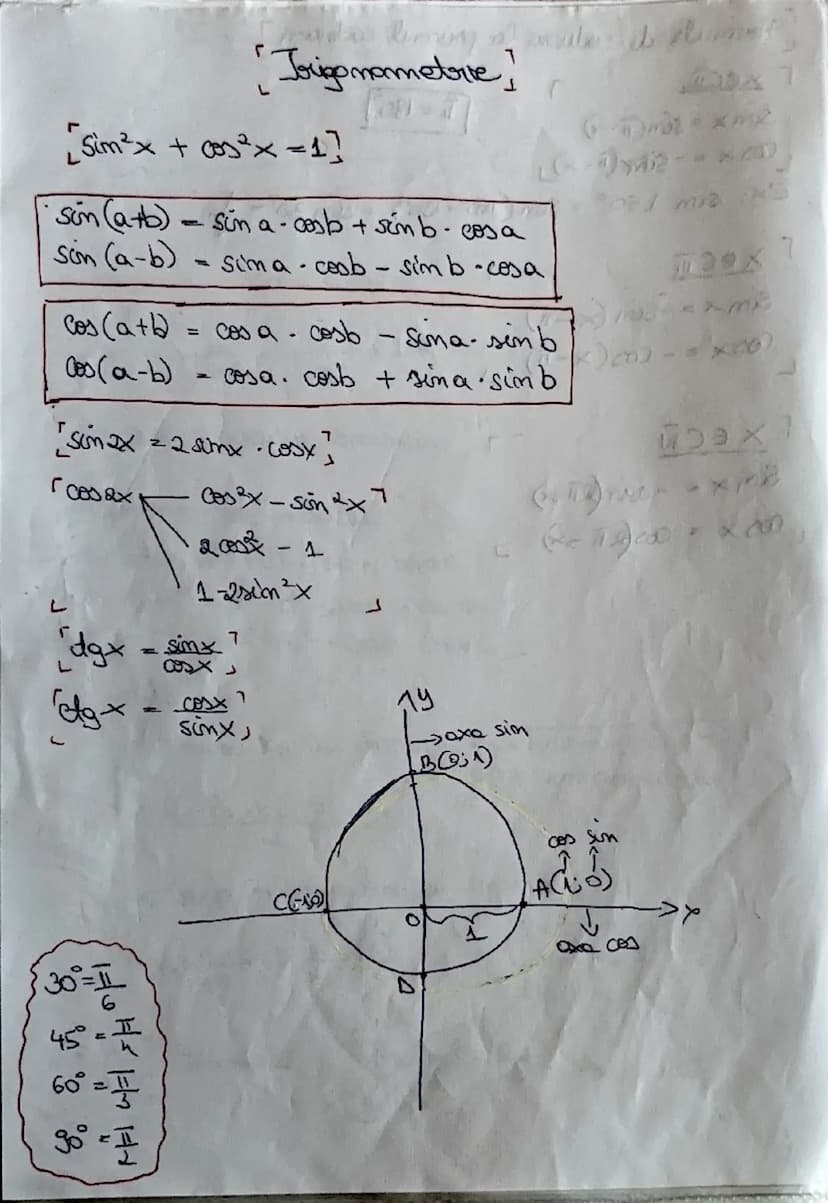 Trigonometrie
sin²x + cos²x = 1
sin(a+b) = sin a · cos b + sin b · cos a
sin(a-b) = sin a · cos b - sin b · cos a
cos(a+b) = cos a · cos b - sin a · sin b
cos(a-b) = cos a · cos b + sin a · sin b
sin 2x = 2 sin x · cos x
cos 2x cos²x - sin²x
2cos²x - 1
1 - 2sin²x
tg x = sin x / cos x
ctg x = cos x / sin x
y
→ axa sin
B(0;1)
cos sin
A(1;0)
C(-1;0)
O
1
x
axa cos
D
30° = π/6
45° = π/4
60° = π/3
90° = π/2